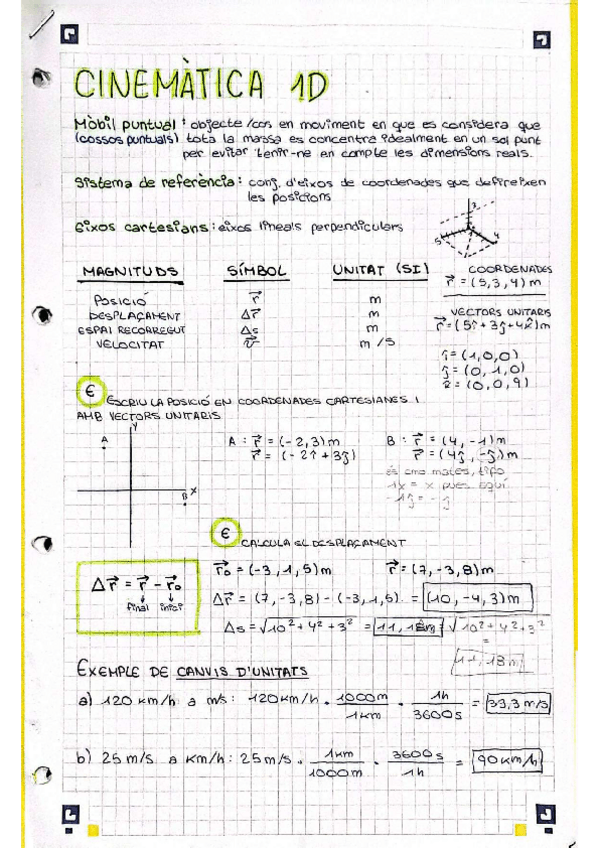 CINEMÀTICA 1D
Mòbil puntual: objecte/cos en moviment en que es considera que
(cossos puntuals) tota la massa es concentra idealment en un sol punt
per evitar tenir-ne en compte les dimensions reals.
Sistema de referència: conj. d'eixos de coordenades que defineixen
les posicions
Eixos cartesians: eixos lineals perpendiculars
3
5
4
MAGNITUDS SÍMBOL UNITAT (SI)
POSICIÓ r⃗ m
DESPLAÇAMENT Δr⃗ m
ESPAI RECORREGUT Δs m
VELOCITAT v⃗ m/s
COORDENADES
r⃗ = (5,3,4) m
VECTORS UNITARIS
r⃗ = (5î + 3ĵ + 4k̂) m
î = (1,0,0)
ĵ = (0,1,0)
k̂ = (0,0,9)
€ ESCRIU LA POSICIÓ EN COORDENADES CARTESIANES I
AMB VECTORS UNITARIS
Y
A
X
B
A: r⃗ = (-2,3) m
r⃗ = (-2î + 3ĵ)
B: r⃗ = (4, -1) m
r⃗ = (4ĵ, -ĵ) m
és como mates, tipo
1x = x pues aquí
-1ĵ = -ĵ
€ CALCULA EL DESPLAÇAMENT
Δr⃗ = r⃗ - r⃗₀
final inici
r⃗₀ = (-3,1,5) m r⃗ = (7,-3,8) m
Δr⃗ = (7,-3,8) - (-3,1,5) = (10,-4,3) m
Δs = √10² + 4² + 3² = 11,18m √10² + 4² + 3²
=
11,18m
EXEMPLE DE CANVIS D'UNITATS
a) 120 km/h a m/s: 120km/h · 1000m / 1km · 1h / 3600s = 33,3 m/s
b) 25 m/s a km/h: 25 m/s · 1km / 1000m · 3600s / 1h = 90km/h